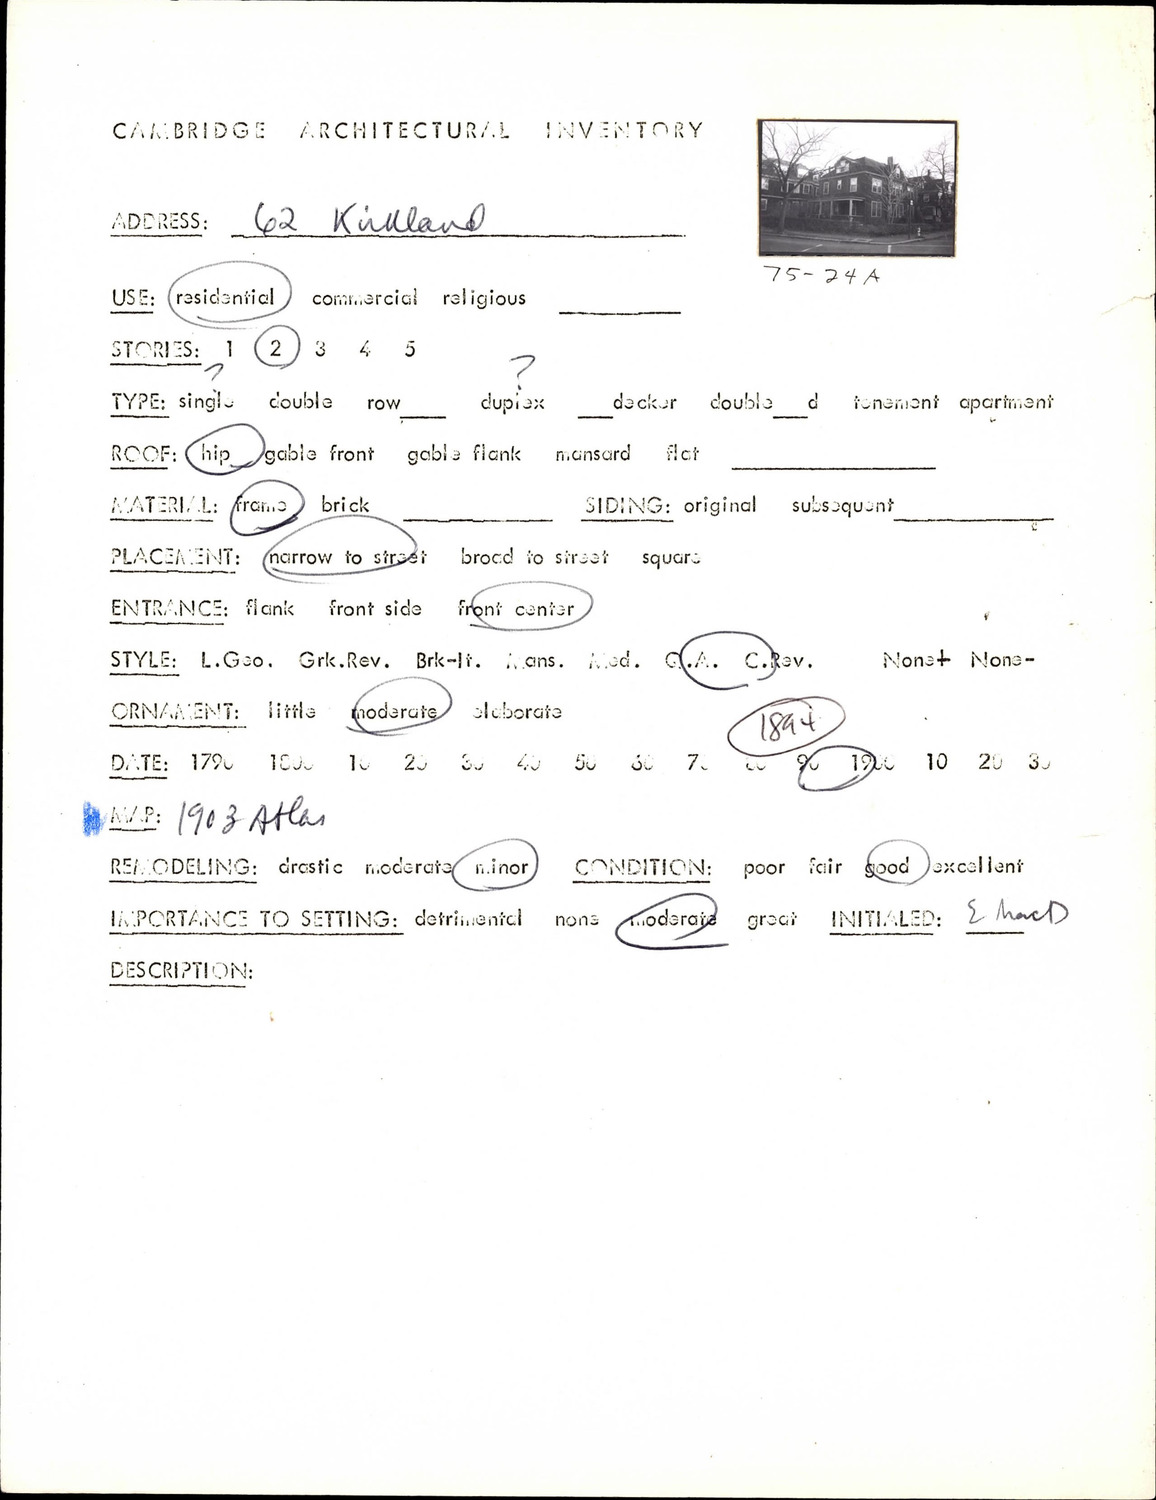 CAMBRIDGE ARCHITECTURAL INVENTORY
ADDRESS: 62 Kirkland
75-24A
USE: residential commercial religious
STORIES: 1 2 3 4 5
? ?
TYPE: single double row____ duplex ____decker double____d tenement apartment
ROOF: hip gable front gable flank mansard flat
MATERIAL: frame brick SIDING: original subsequent
PLACEMENT: narrow to street broad to street square
ENTRANCE: flank front side front center
STYLE: L.Geo. Grk.Rev. Brk-It. Mans. Med. Q.A. C.Rev. None+ None-
ORNAMENT: little moderate elaborate
1894
DATE: 1790 1800 10 20 30 40 50 60 70 80 90 1900 10 20 30
MAP: 1903 Atlas
REMODELING: drastic moderate minor CONDITION: poor fair good excellent
IMPORTANCE TO SETTING: detrimental none moderate great INITIALED: E MacD
DESCRIPTION: